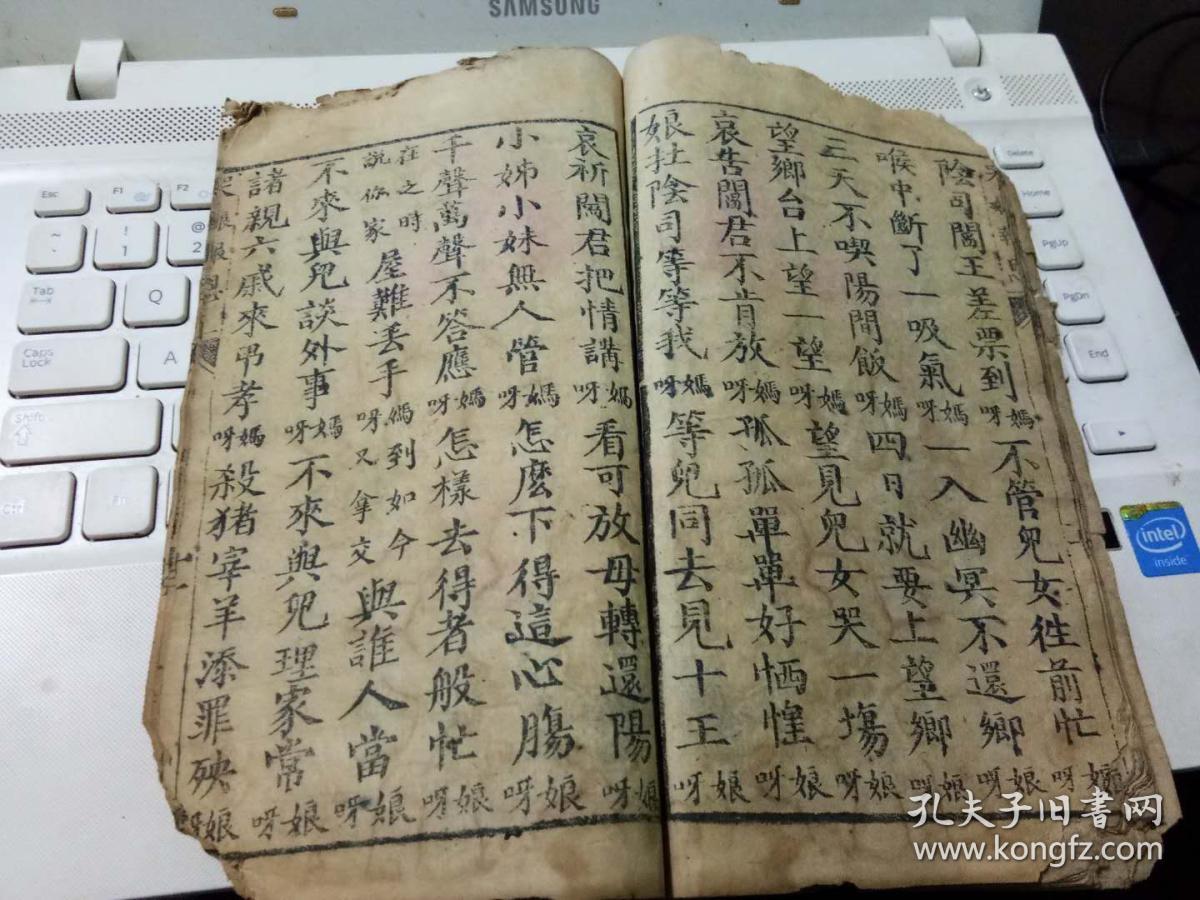 SAMSUNG
陰司閻王差票到媽呀不管兒女徃前忙娘呀
喉中斷了一吸氣媽呀一入幽冥不還鄉娘呀
三天不喫陽間飯媽呀四日就要上望鄉娘呀
望鄉台上望一望媽呀望見兒女哭一塲娘呀
哀告閻君不肯放媽呀孤孤單單好恓惶娘呀
娘扗陰司等等我媽呀等兒同去見十王娘呀
哀祈閻君把情講媽呀看可放母轉還陽娘呀
小姊小妹無人管媽呀怎麽下得這心膓娘呀
千聲萬聲不答應媽呀怎樣去得者般忙娘呀
在之時說你家屋難丢手媽呀到如今又拿交與誰人當娘呀
不來與兒談外事媽呀不來與兒理家常娘呀
諸親六戚來弔孝媽呀殺猪宰羊添罪殃娘呀
十一
Esc
F1
F2
Tab
Q
Caps Lock
A
Shift
Ctrl
Delete
Home
PgUp
PgDn
End
intel inside
孔夫子旧书网
www.kongfz.com